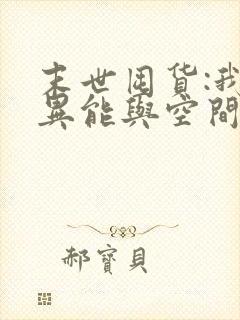 末世囤货:我
異能與空間
郝寶貝